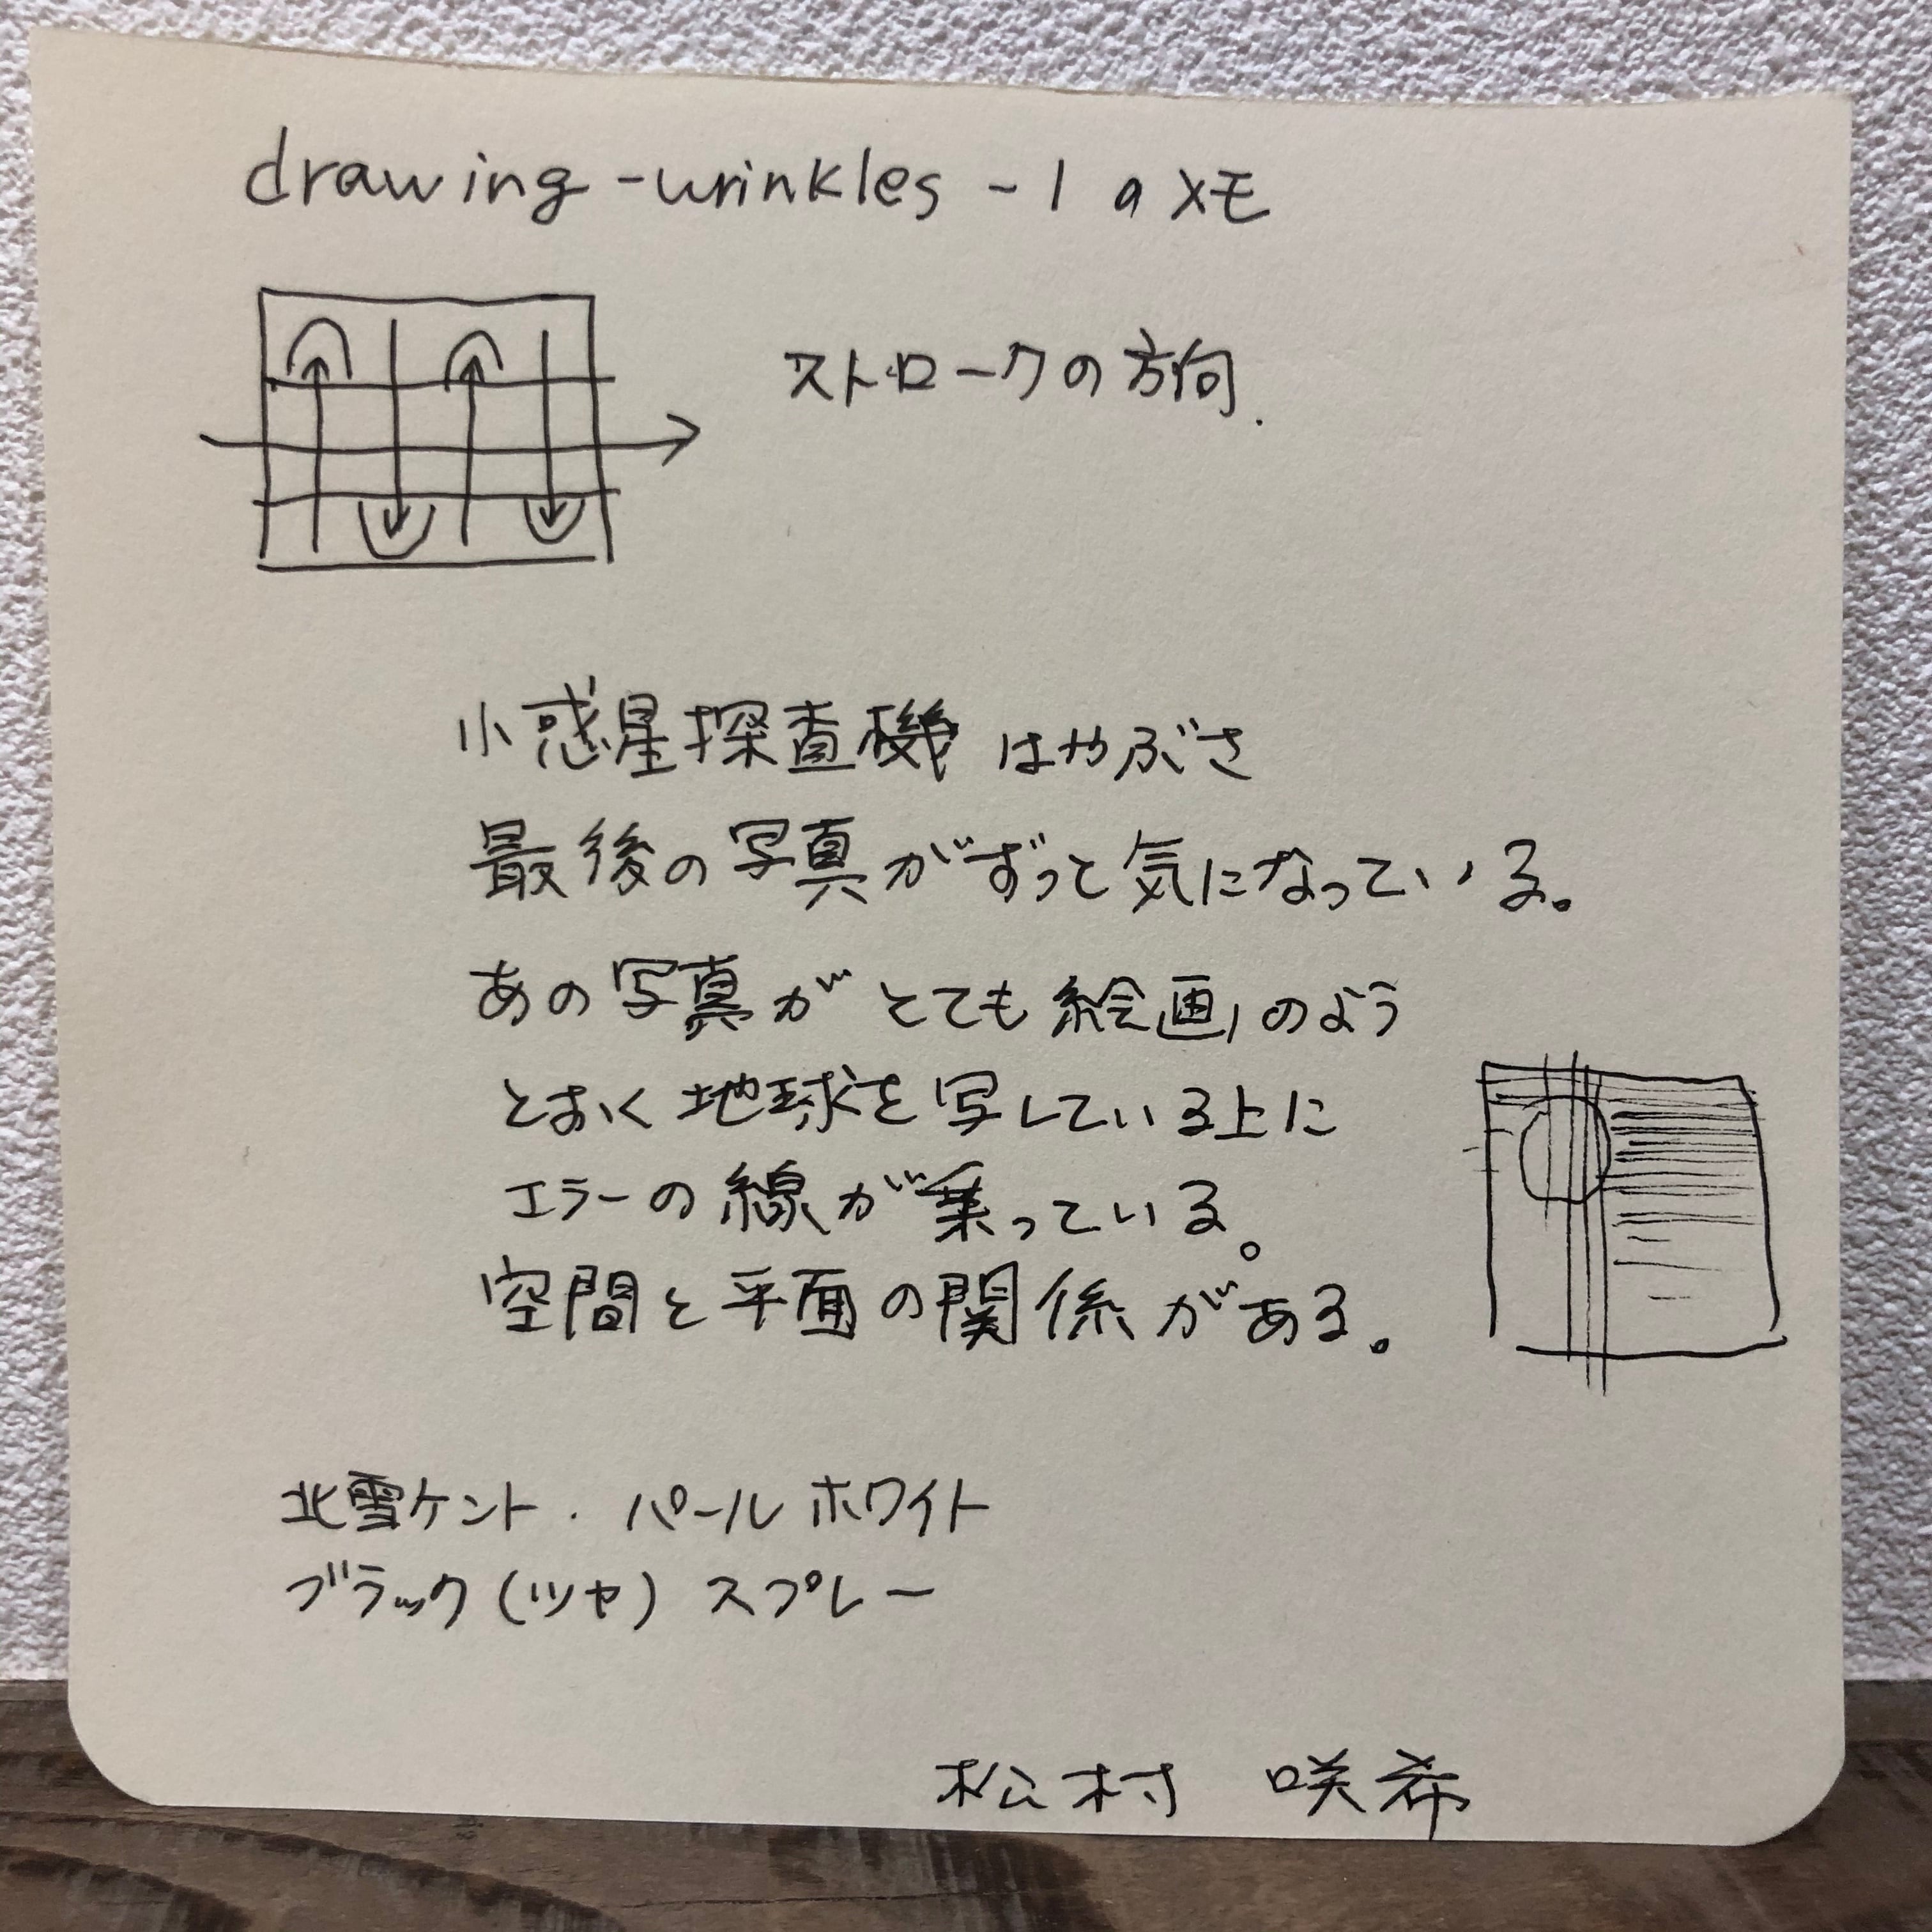 drawing-wrinkles-1 のメモ
ストロークの方向.
小惑星探査機 はやぶさ
最後の写真がずっと気になっている。
あの写真がとても絵画のよう
とおく地球を写している上に
エラーの線が乗っている。
空間と平面の関係がある。
北雪ケント. パールホワイト
ブラック(ツヤ) スプレー
松村 咲希